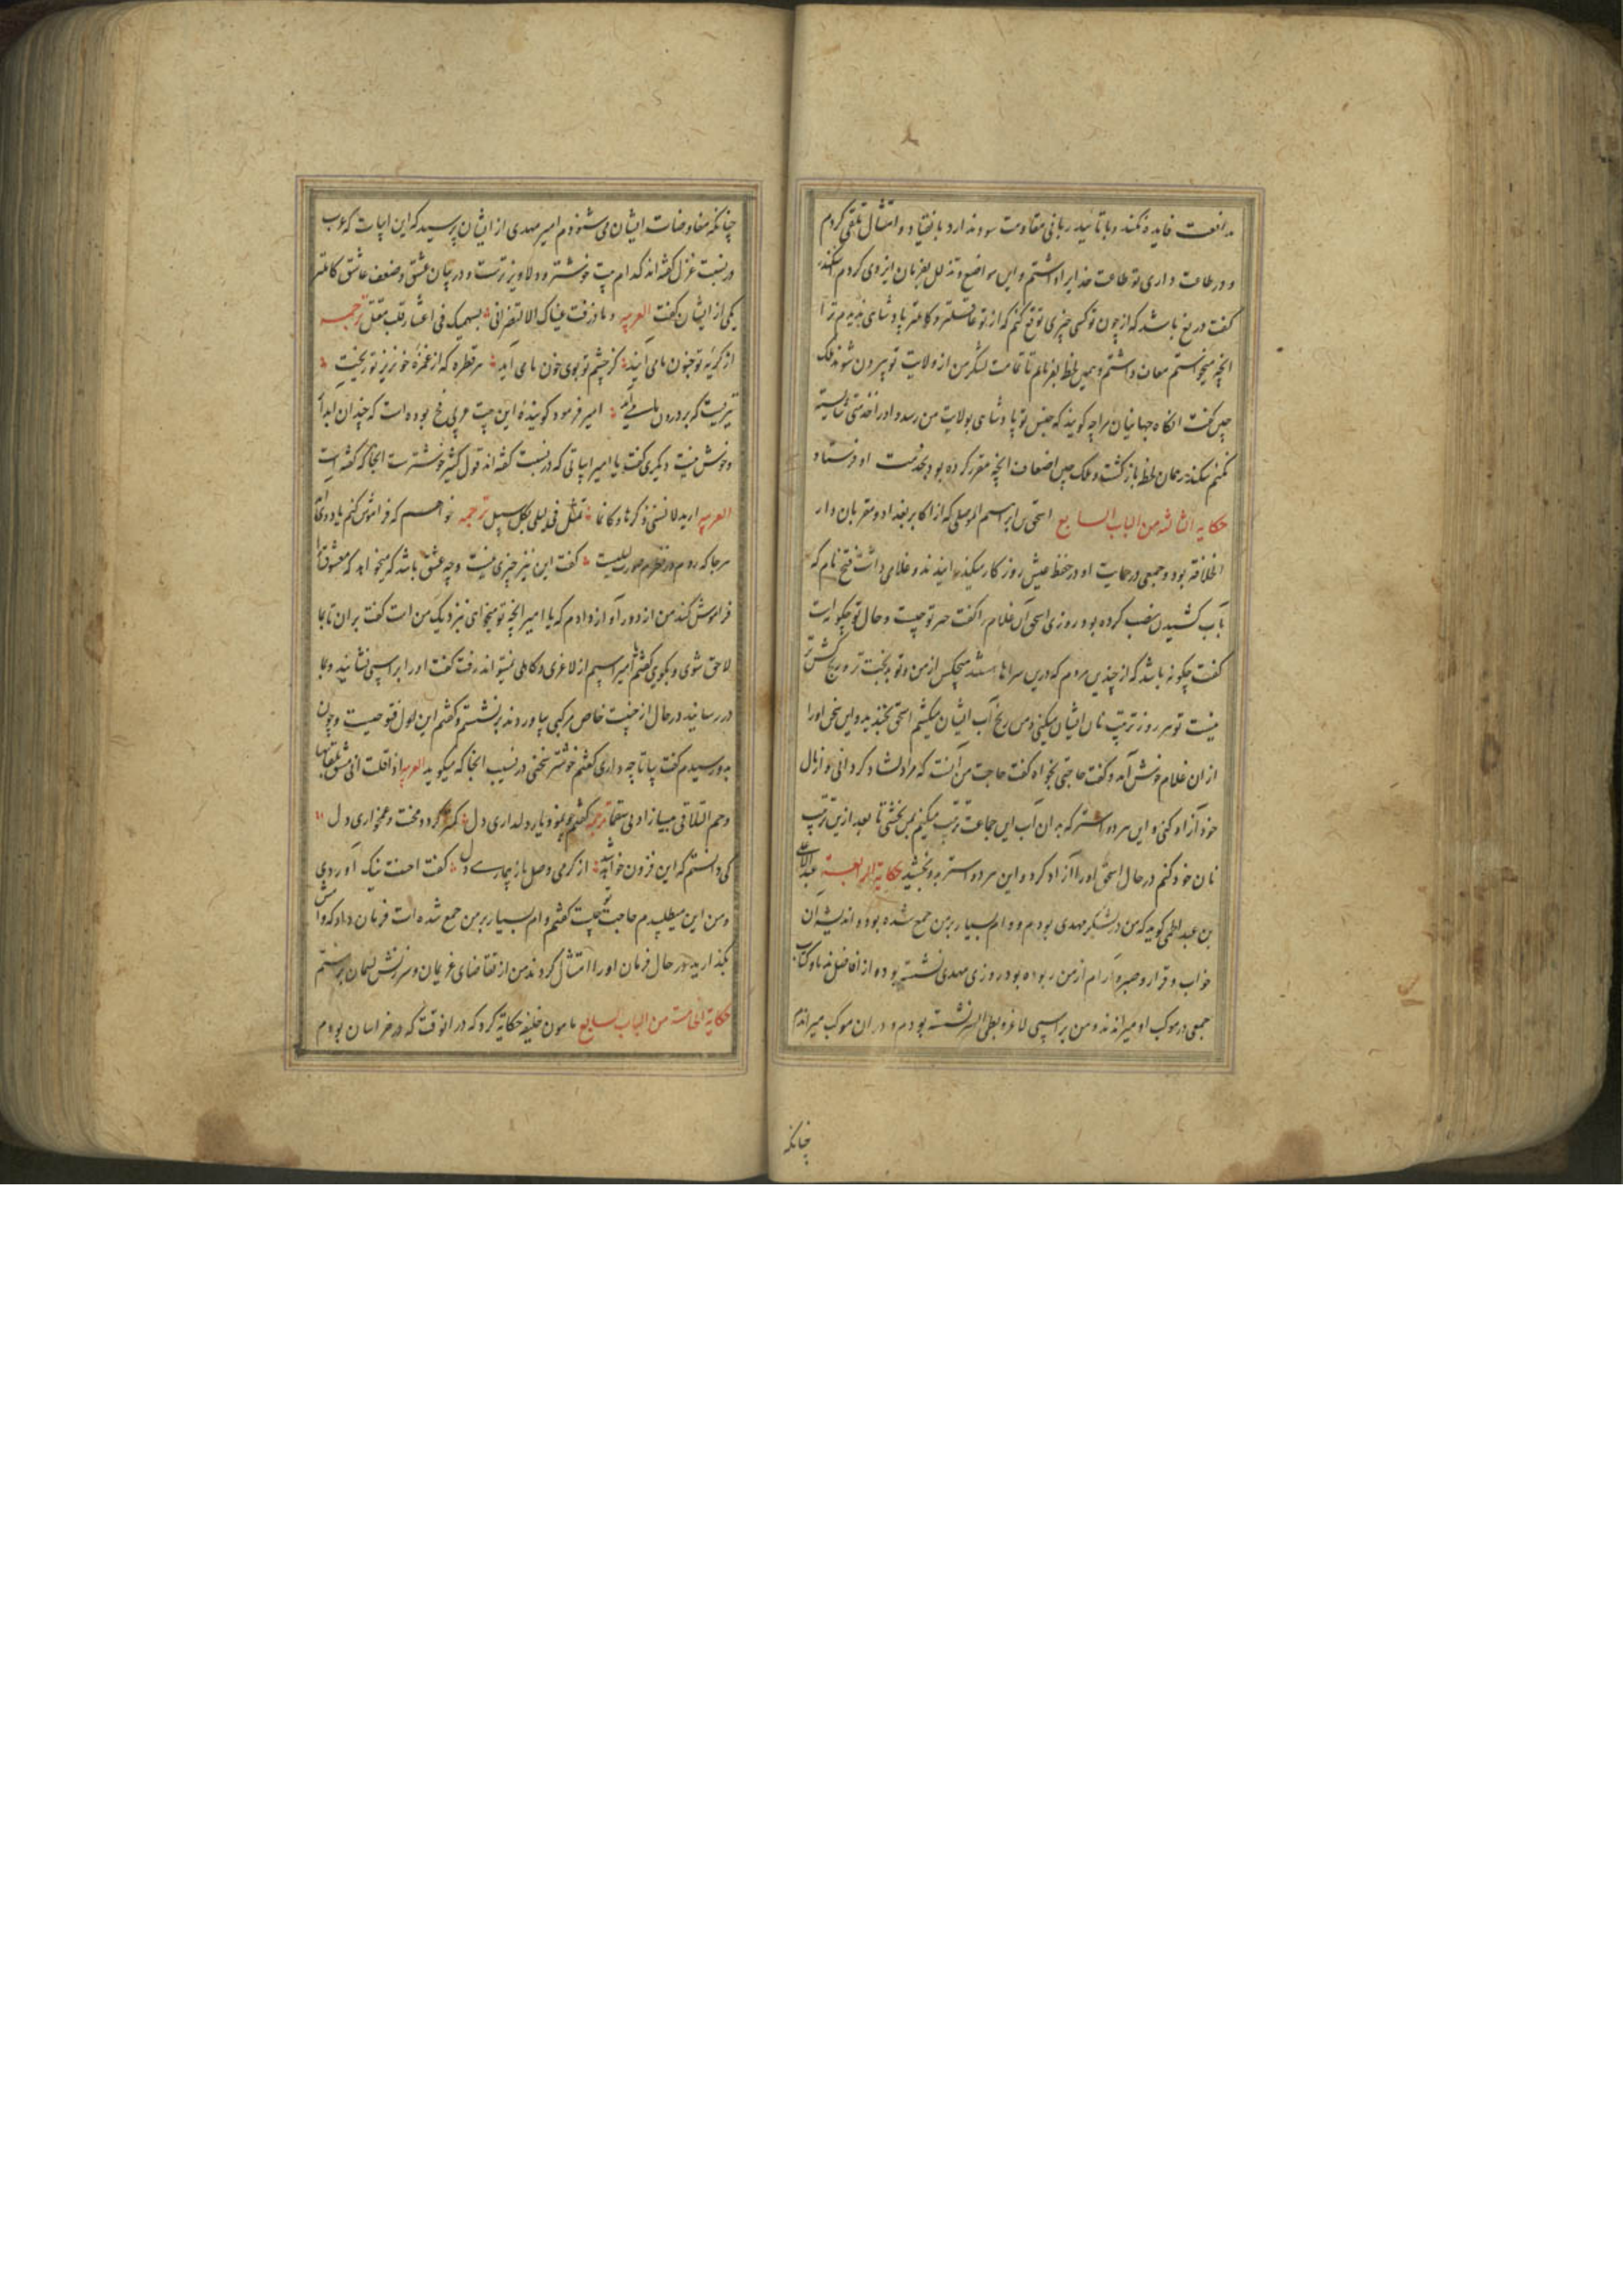 مدافعت فایده نکند و با تأیید ربانی مقاومت سود ندارد بانقیاد و امتثال تلقی کردم
و در طاعت داری تو طاعت خدایرا داشتم و این تواضع و تذلل بفرمان ایزدی کردم سکندر
کفت دریغ باشد که از چون تو کسی چیزی توقع کنم که از تو عاقلتر و کاملتر پادشاهی ندیدم ترا
انچه میخواستم معاف داشتم و همین لحظه بفرمایم تا تمامت لشکر من از ولایت تو بیرون شوند ملک
چین کفت انکاه جهانیان مرا چه کویند که جنس تو پادشاهی بولایت من رسد و او را خدمتی شایسته
نکنم سکندر همان لحظه بازکشت و ملک چین اضعاف انچه مقرر کرده بود بخدمت او فرستاد
حکایه الثالثه من الباب السابع اسحق بن ابراهیم الموصلی که از اکابر بغداد و مقربان دار
الخلافة بود و جمعی در حمایت او در خفظ عیش روزکار میکذرانیدند و غلامی داشت فتح نام که
بآب کشیدن نصب کرده بود روزی اسحق آن غلام را کفت خبر تو چیست و حال تو چکونه است
کفت چکونه باشد که از چندین مردم که درین سراها هستند هیچکس از من و تو بدبخت تر و رنج کش تر
نیست تو هر روز ترتیب نان ایشان میکنی و من رنج آب ایشان میکشم اسحق بخندید و این سخن او را
از ان غلام خوش آمد و کفت حاجتی بخواه کفت حاجت من آنست که مرا دلشاد کردانی و از مال
خود آزاد کنی و این هر دو اشتر که بدان آب این جماعت ترتیب میکنم بمن بخشی تا بعد ازین ترتیب
نان خود کنم در حال اسحق او را آزاد کرد و این هر دو استر بدو بخشید حکایة الرابعة عبدالله
بن عبدالاعلی کوید که من در لشکر مهدی بودم و وام بسیار بر من جمع شده بود و اندیشه آن
خواب و قرار و صبر و آرام از من ربوده بود روزی مهدی نشسته بود و از افاضل ندما و کتاب
جمعی در موکب او میراندند و من بر اسپی لاغر و بطی السیر نشسته بودم و در ان موکب میراندم
چنانکه
چنانکه مفاوضات ایشان می شنودم امیر مهدی از ایشان پرسید که این ابیات که عرب
در نسبت غزل کفته اند کدام بیت خوشتر و دلاویزترست و در بیان عشق و ضعف عاشق کاملتر
یکی از ایشان کفت العربیه و ما ذرفت عیناک الا لتضربی بسهمیک فی اعشار قلب مقتل ترجمه
از کریه تو جنون ما می آید کز چشم تو بوی خون ما می آید هر قطره که از غمزه خونریز تو ریخت
تیریست که بر درون ما می آید امیر فرمود کوینده این بیت عربی فج بوده است که چندان ابدا
و خوش نیست دیکری کفت یا امیر ابیاتی که در نسبت کفته اند قول کثیر خوشترست انجا که کفته است
العربیه ارید لانسی ذکرها و کانما تمثل لی لیلی بکل سبیل ترجمه خواهم که فراموش کنم یاد وی
هر جا که روم در نظرم صورت لیلیست کفت این نیز چیزی نیست و چه عشق باشد که میخواهد که معشوق را
فراموش کند من از دور آواز دادم که یا امیر انچه تو میخواهی نزدیک من است کفت بران تا بما
لاحق شوی و بکوی کفتم یا امیر اسپم از لاغری و کاهلی نمیتواند رفت کفت او را بر اسپی نشانید و بما
در رسانید در حال از جنیبت خاص مرکبی بیاوردند برنشستم و کفتم این اول فتوحیست و چون
بدو رسیدم کفت بیا تا چه داری کفتم خوشتر سخنی در نسیب انجا که میکوید العربیه اذا قلت انی مشتف بلقائها
و حم التلاقی بیننا زادنی سقما ترجمه کفتم چو بنمود یار دلداری دل کمتر کردد محنت و غمخواری دل
کی دانستم که این فزون خواهد شد از کرمی وصل باز بیماری دل کفت احسنت نیک آوردی
و من این میطلبیدم حاجت تو چیست کفتم وام بسیار بر من جمع شده است فرمان داد که وامش
بکذارید در حال فرمان او را امتثال کردند من از تقاضای غریمان و سرزنش لئیمان برستم
حکایة الخامسة من الباب السابع مامون خلیفه حکایه کرد که در انوقت که در خراسان بودم